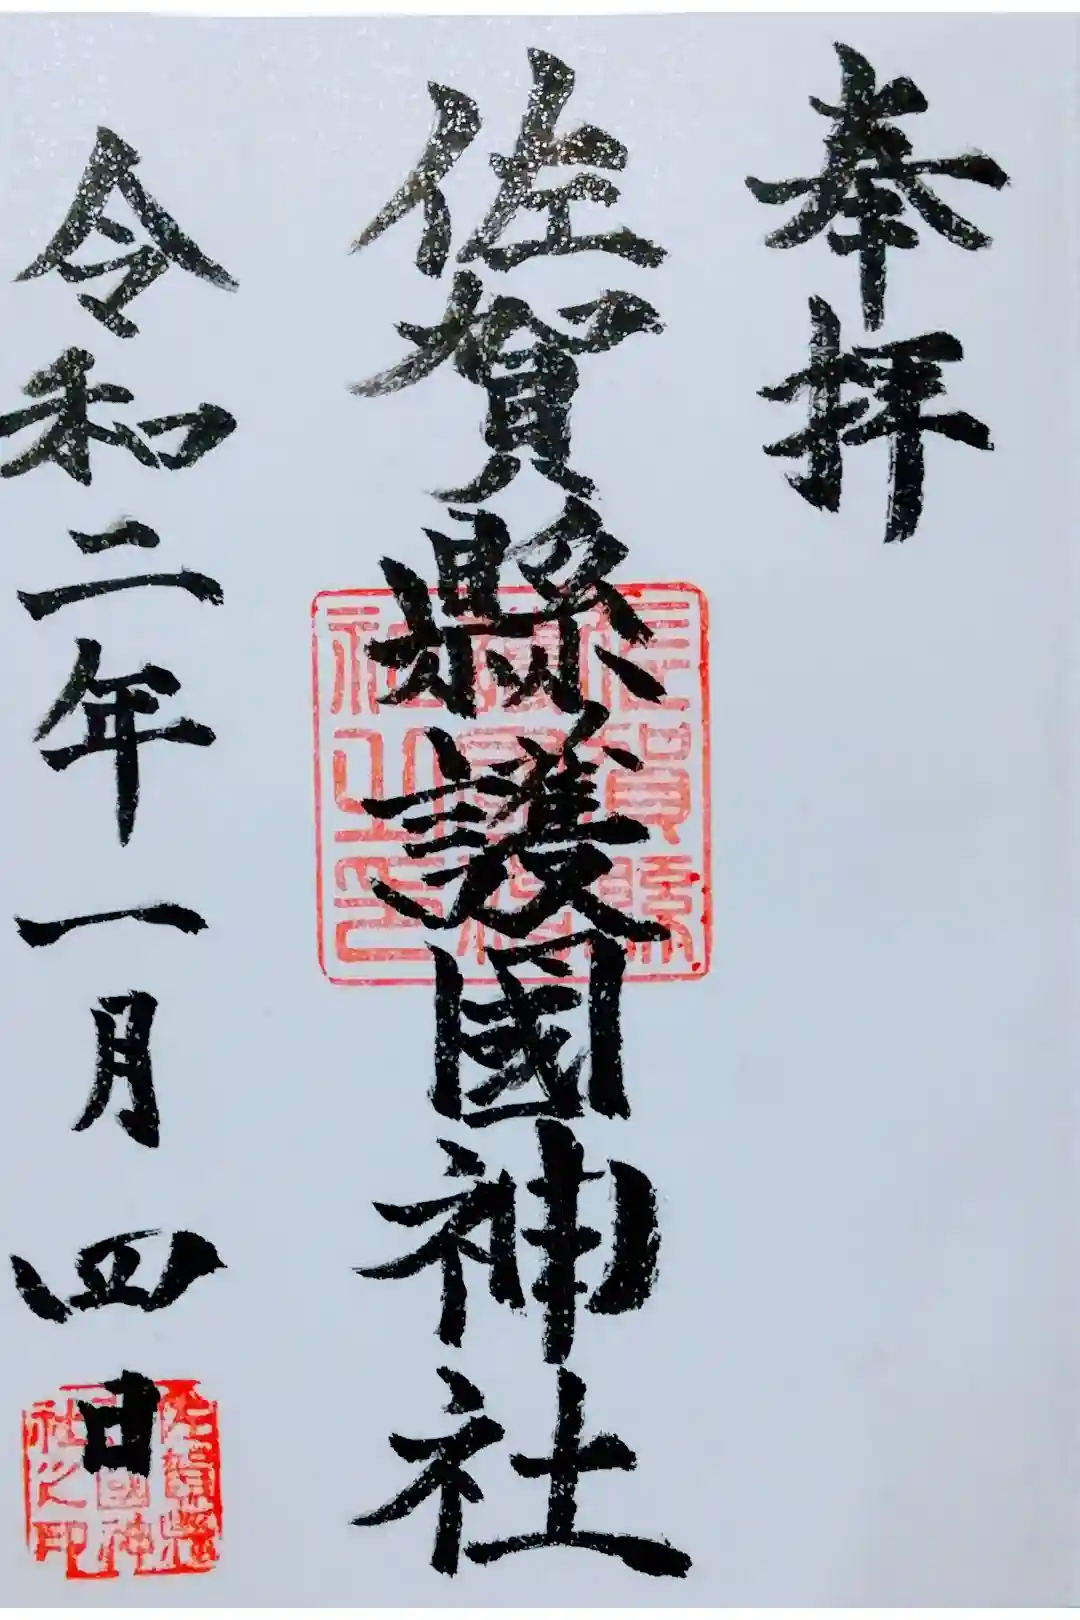 奉拝
佐賀縣護國神社
令和二年一月四日
佐賀縣護國神社之印
佐賀縣護國神社之印